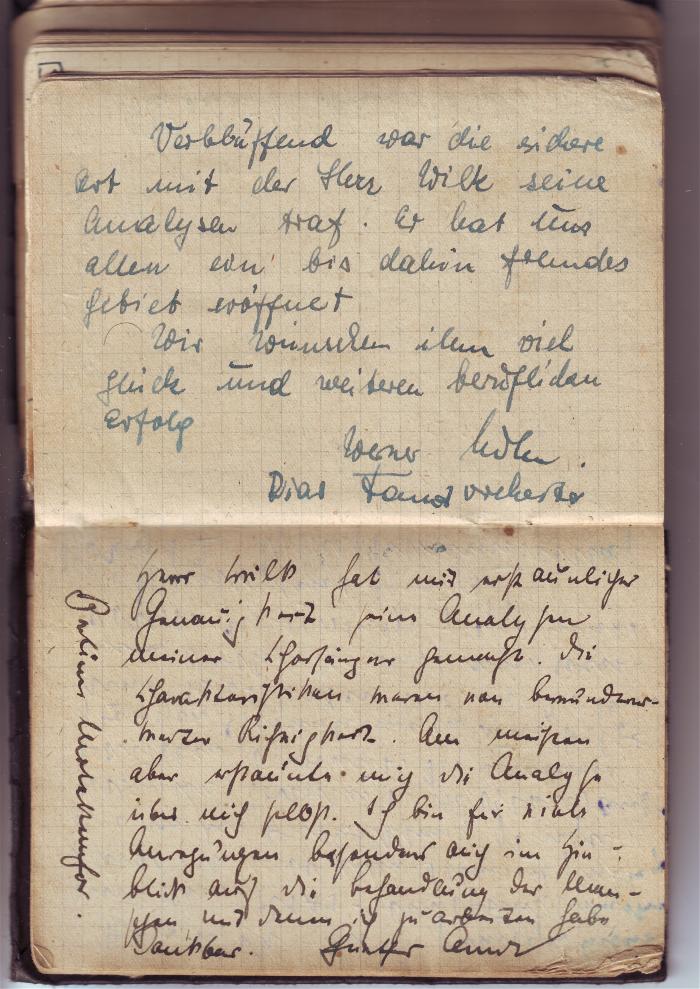 Verblüffend war die sichere
Art mit der Herr Wilk seine
Analysen traf. Er hat uns
allen ein bis dahin fremdes
Gebiet eröffnet
Wir wünschen ihm viel
Glück und weiteren beruflichen
Erfolg
Werner
Tanzorchester
Herr Wilk hat mit erstaunlicher
Genauigkeit seine Analysen
meiner Chorsänger gemacht. Die
Charakteristiken waren von bewunderns-
werter Richtigkeit. Am meisten
aber erstaunte mich die Analyse
über mich selbst. Ich bin für viele
Anregungen besonders auch im Hin-
blick auf die Behandlung der Men-
schen mit denen ich zu arbeiten habe
dankbar. Günther Arndt
Berliner Motettenchor.